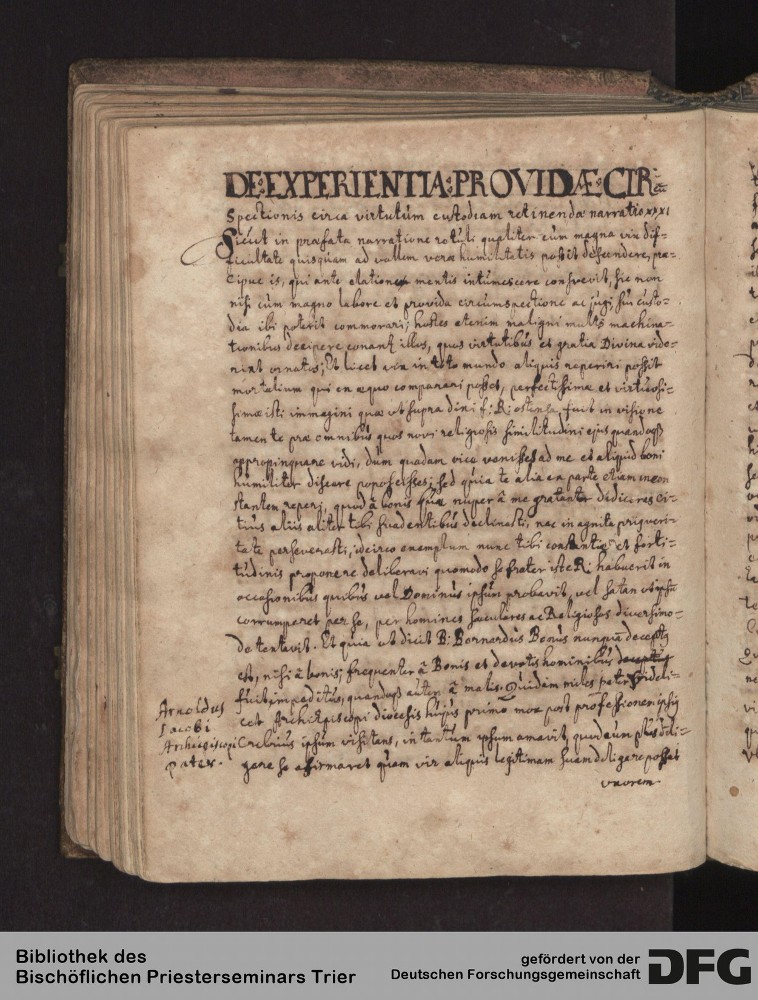 DE EXPERIENTIA PROVIDÆ CIR=
Spectionis circa virtutum custodiam retinenda narratio XXXI
Sicut in præfata narratione rotuli qualiter cum magna vix dif=
ficultate quisquam ad vallem veræ humilitatis possit descendere, præ=
cipue is, qui ante elationem mentis intumescere consuevit, sic non
nisi cum magno labore et provida circumspectione ac jugi sui custo=
dia ibi poterit commorari; hostes etenim maligni multis machina=
tionibus decipere conantur illos, quos virtutibus et gratia Divina vide=
rint ornatos; Et licet vix in toto mundo aliquis reperiri possit
mortalium qui ex æquo comparari posset, perfectissimæ et virtuosis=
simæ isti immagini quæ ut supra dixi f: R: ostensa fuit in visione
tamen te præ omnibus quos novi religiosis similitudini ejus quandoque
appropinquare vidi, dum quadam vice venisses ad me et aliquid boni
humiliter discere poposcisses; sed quia te alia ex parte etiam incon
stantem reperi, quod â bonis quæ nuper â me gratanter didiceras ci=
tius aliis aliter tibi suadentibus declinasti, nec in agnita priq veri=
tate perseverasti, idcirco exemplum nunc tibi constantiæ et forti=
tudinis proponere deliberavi quomodo se frater iste R: habuerit in
occasionibus quibus vel Dominus ipsum probavit, vel Satan ut ipsum
corrumperet per se, per homines sæculares ac Religiosos diversimo=
de tentavit. Et quia ut dicit B: Bernardus Bonus nunquam deceptus
est, nisi â bonis; frequenter â Bonis et devotis hominibus deceptus
fuit impeditus, quandoque autem â malis. Quidam miles pater videli=
cet Archiepiscopi diocesis hujus primo mox post professionem ipsius
Crebrius ipsum visitans, in tantum ipsum amavit, quod eum plus dili=
gere se affirmaret quam vir aliquis legitimam suam diligere possit
uxorem
Arnoldus
Jacobi
Archiepiscopi
pater.
Bibliothek des
Bischöflichen Priesterseminars Trier
gefördert von der
Deutschen Forschungsgemeinschaft
DFG